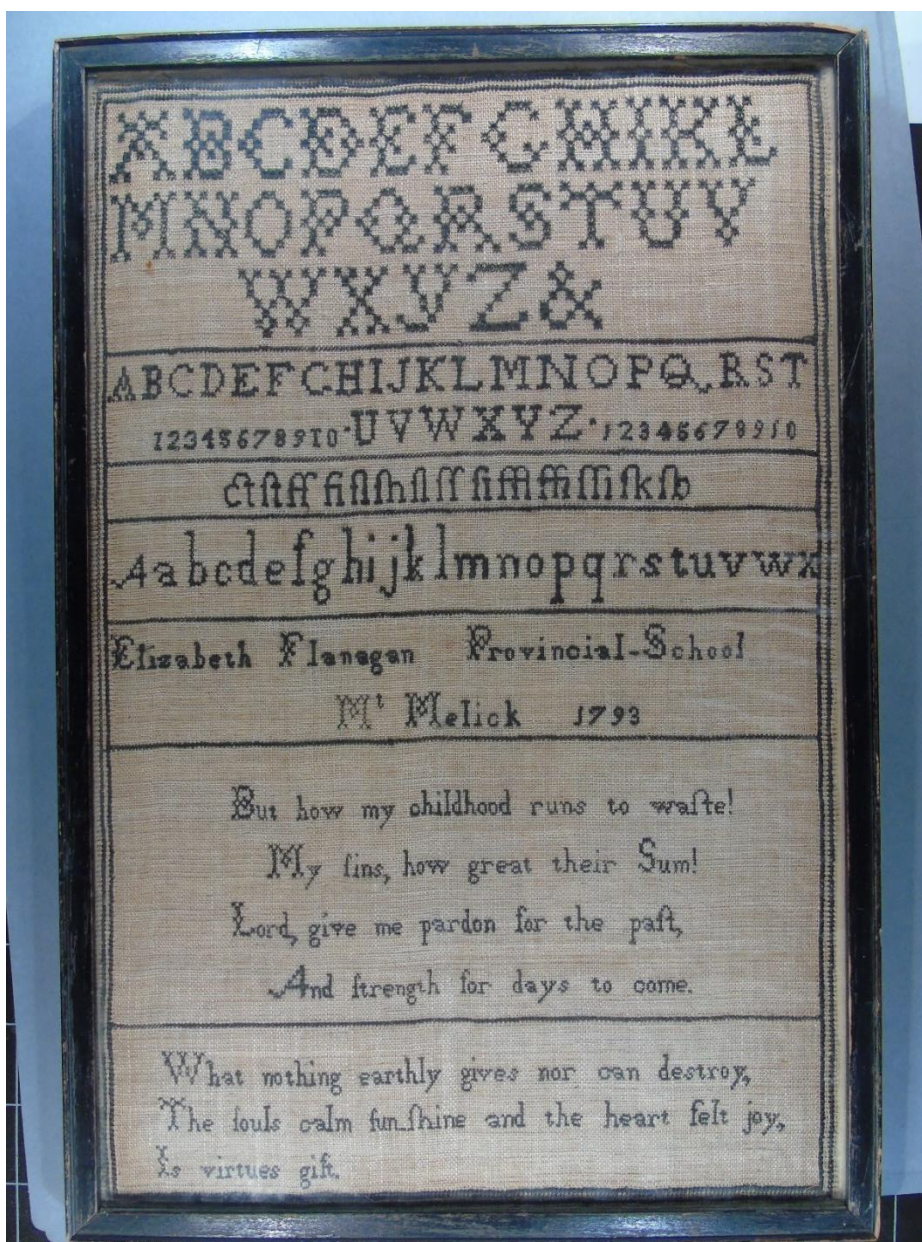 ABCDEFGHIKL
MNOPQRSTUV
WXYZ&
ABCDEFGHIJKLMNOPQRST
12345678910·UVWXYZ·12345678910
ctſtfffiflſhſlſſſifflffiſſiſkſb
Aabcdefghijklmnopqrstuvwx
Elizabeth Flanagan Provincial-School
Mt Melick 1793
But how my childhood runs to waſte!
My ſins, how great their Sum!
Lord, give me pardon for the paſt,
And ſtrength for days to come.
What nothing earthly gives nor can destroy,
The ſouls calm ſun-ſhine and the heart felt joy,
Is virtues gift.